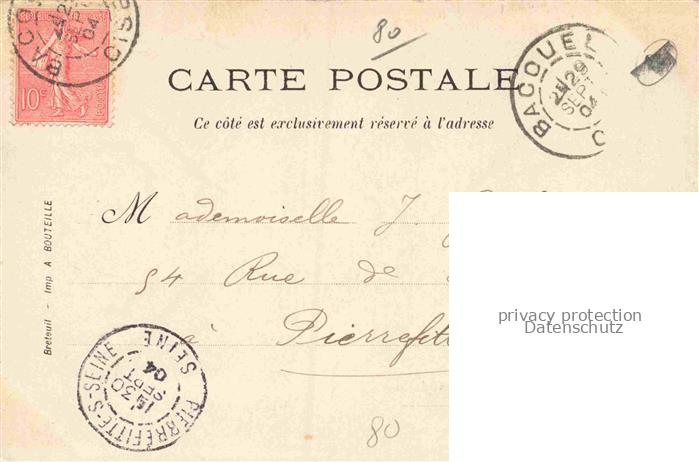 80
CARTE POSTALE
Ce côté est exclusivement réservé à l'adresse
10c
BACOUEL
24
29
SEPT
04
Breteuil - Imp A BOUTEILLE
Mademoiselle J.
54 Rue de
à Pierrefitt
privacy protection
Datenschutz
PIERREFITTE-S-SEINE SEINE
30
SEPT
04
80